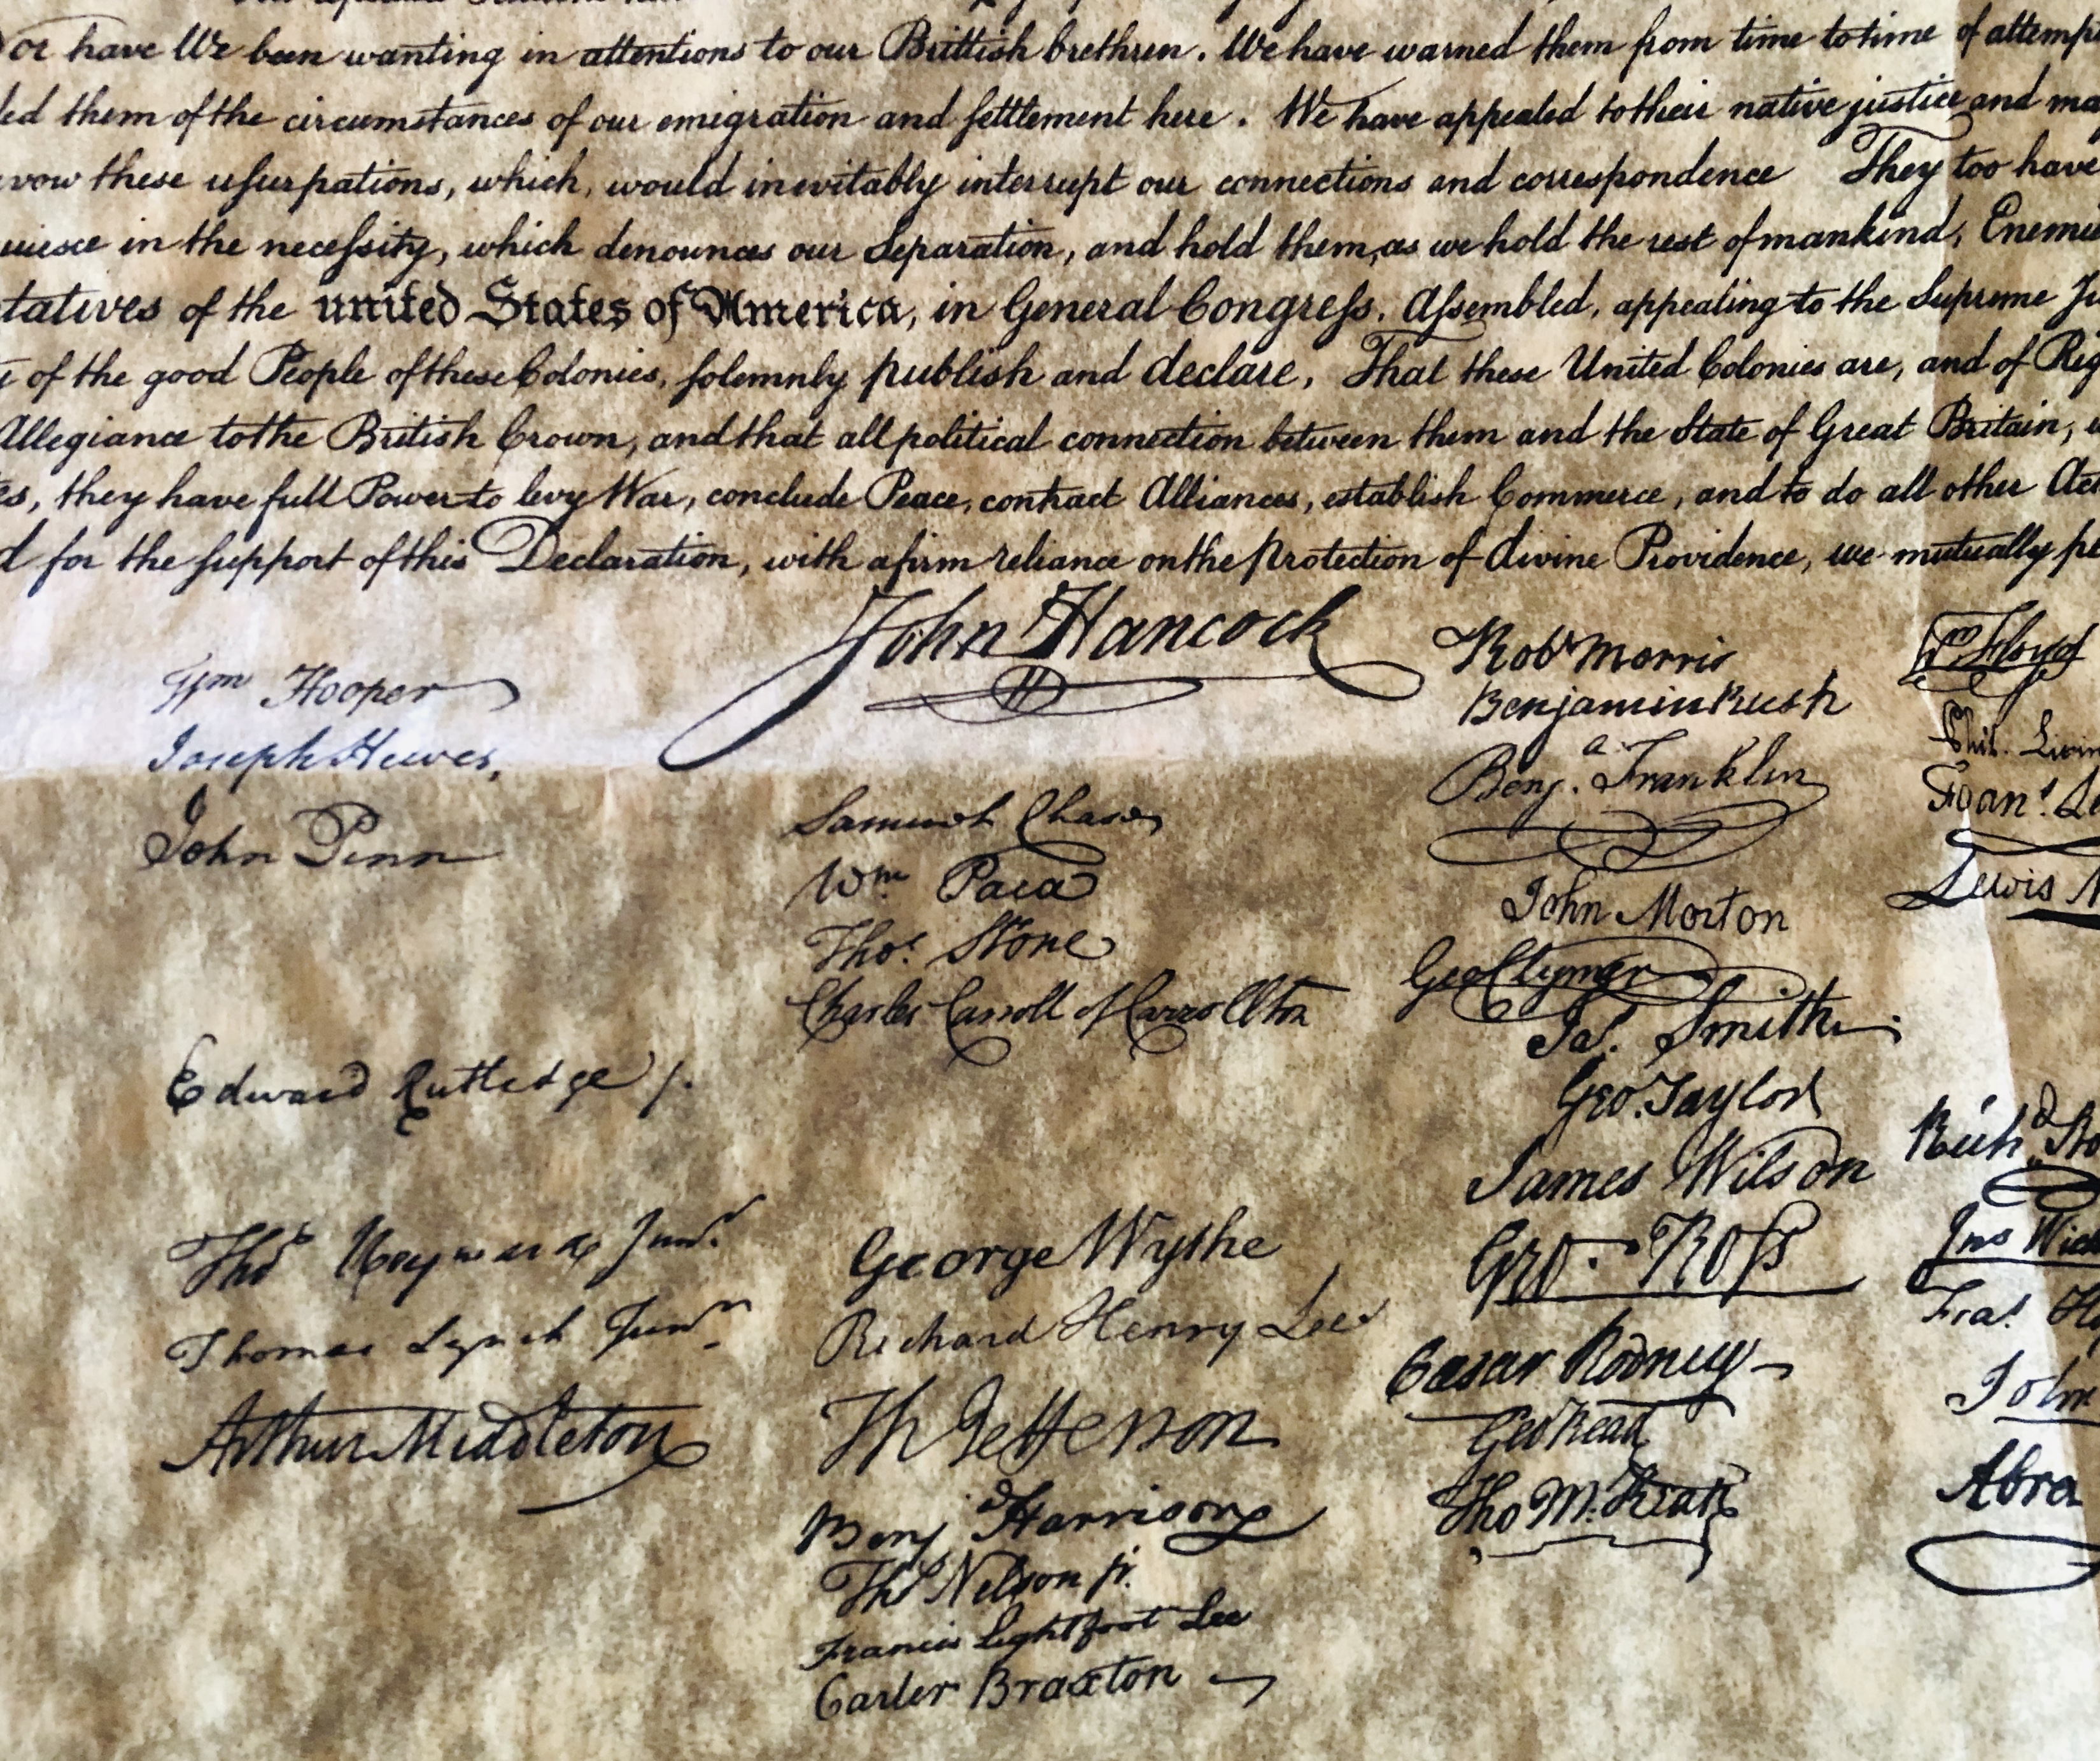 or have We been wanting in attentions to our Brittish brethren. We have warned them from time to time of attemp
ed them of the circumstances of our emigration and settlement here. We have appealed to their native justice and ma
vow these usurpations, which, would inevitably interrupt our connections and correspondence They too have
uiesce in the necessity, which denounces our Separation, and hold them, as we hold the rest of mankind, Enemie
tatives of the united States of America, in General Congress. Assembled, appealing to the Supreme Ju
of the good People of these Colonies, solemnly publish and declare, That these United Colonies are, and of Rig
Allegiance to the British Crown, and that all political connection between them and the State of Great Britain,
es, they have full Power to levy War, conclude Peace, contract Alliances, establish Commerce, and to do all other Act
d for the support of this Declaration, with a firm reliance on the Protection of divine Providence, we mutually pl
John Hancock
Wm Hooper
Joseph Hewes,
John Penn
Edward Rutledge /.
Thos Heyward Junr.
Thomas Lynch Junr.
Arthur Middleton
Samuel Chase
Wm. Paca
Thos. Stone
Charles Carroll of Carrollton
George Wythe
Richard Henry Lee
Th Jefferson
Benj Harrison
Thos Nelson jr.
Francis Lightfoot Lee
Carter Braxton
Robt Morris
Benjamin Rush
Benja. Franklin
John Morton
Geo Clymer
Jas. Smith
Geo. Taylor
James Wilson
Geo. Ross
Caesar Rodney
Geo Read
Tho M:Kean
Wm Floyd
Phil. Livin
Frans. Le
Lewis M
Richd. Sto
Jno Wit
Fras. Ho
John
Abra